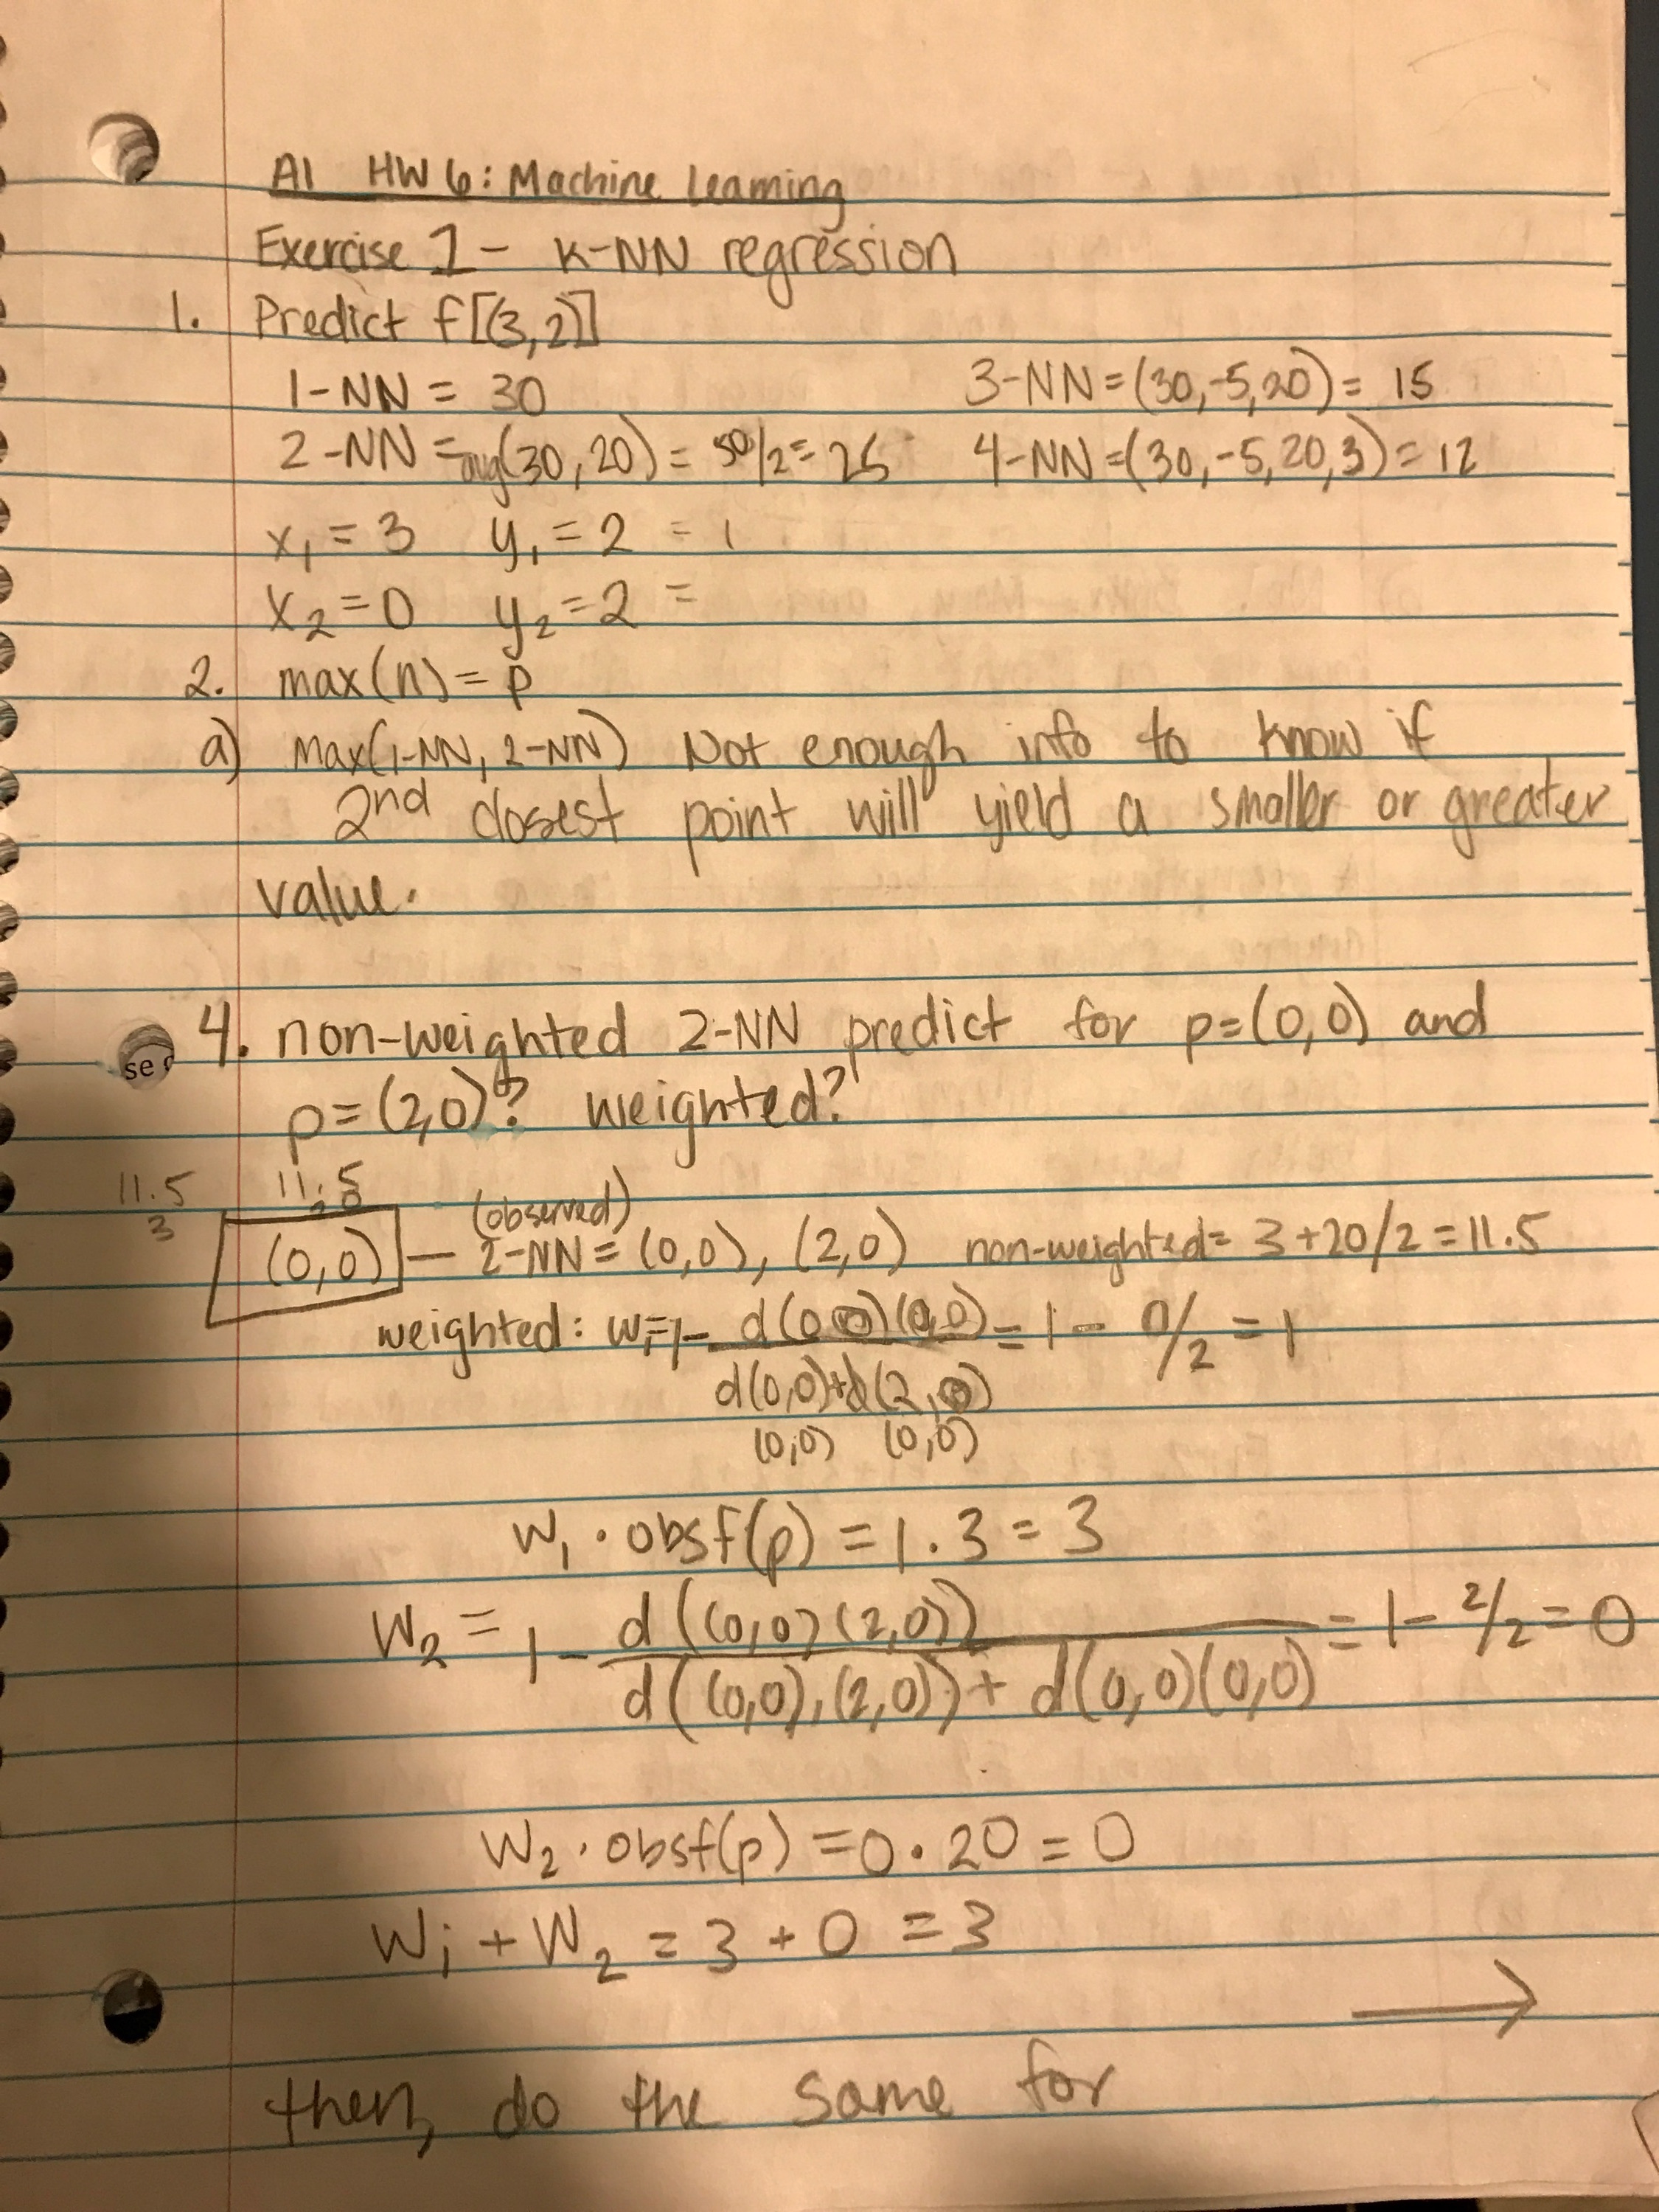 AI HW 6: Machine Learning
Exercise 1 - K-NN regression
1. Predict f[(3,2)]
1-NN = 30
3-NN=(30,-5,20)= 15
2-NN = avg(30,20) = 50/2 = 25
4-NN=(30,-5,20,3)=12
x₁ = 3 y₁ = 2 = 1
x₂ = 0 y₂ = 2 =
2. max(n) = p
a) max(1-NN, 2-NN) Not enough info to know if
2nd closest point will yield a smaller or greater
value.
se
4. non-weighted 2-NN predict for p=(0,0) and
p=(2,0)? weighted?
11.5 11.5
3
(observed)
(0,0) — 2-NN = (0,0), (2,0) non-weighted= 3+20/2=11.5
weighted: w₁=1- d(0,0)(0,0) = 1 - 0/2 = 1
d(0,0)+d(2,0)
(0,0) (0,0)
W₁ · obsf(p) = 1 . 3 = 3
W₂ = 1 - d((0,0)(2,0)) = 1 - 2/2 = 0
d((0,0),(2,0))+ d(0,0)(0,0)
W₂ · obsf(p) = 0 · 20 = 0
W₁ + W₂ = 3 + 0 = 3
→
then, do the same for